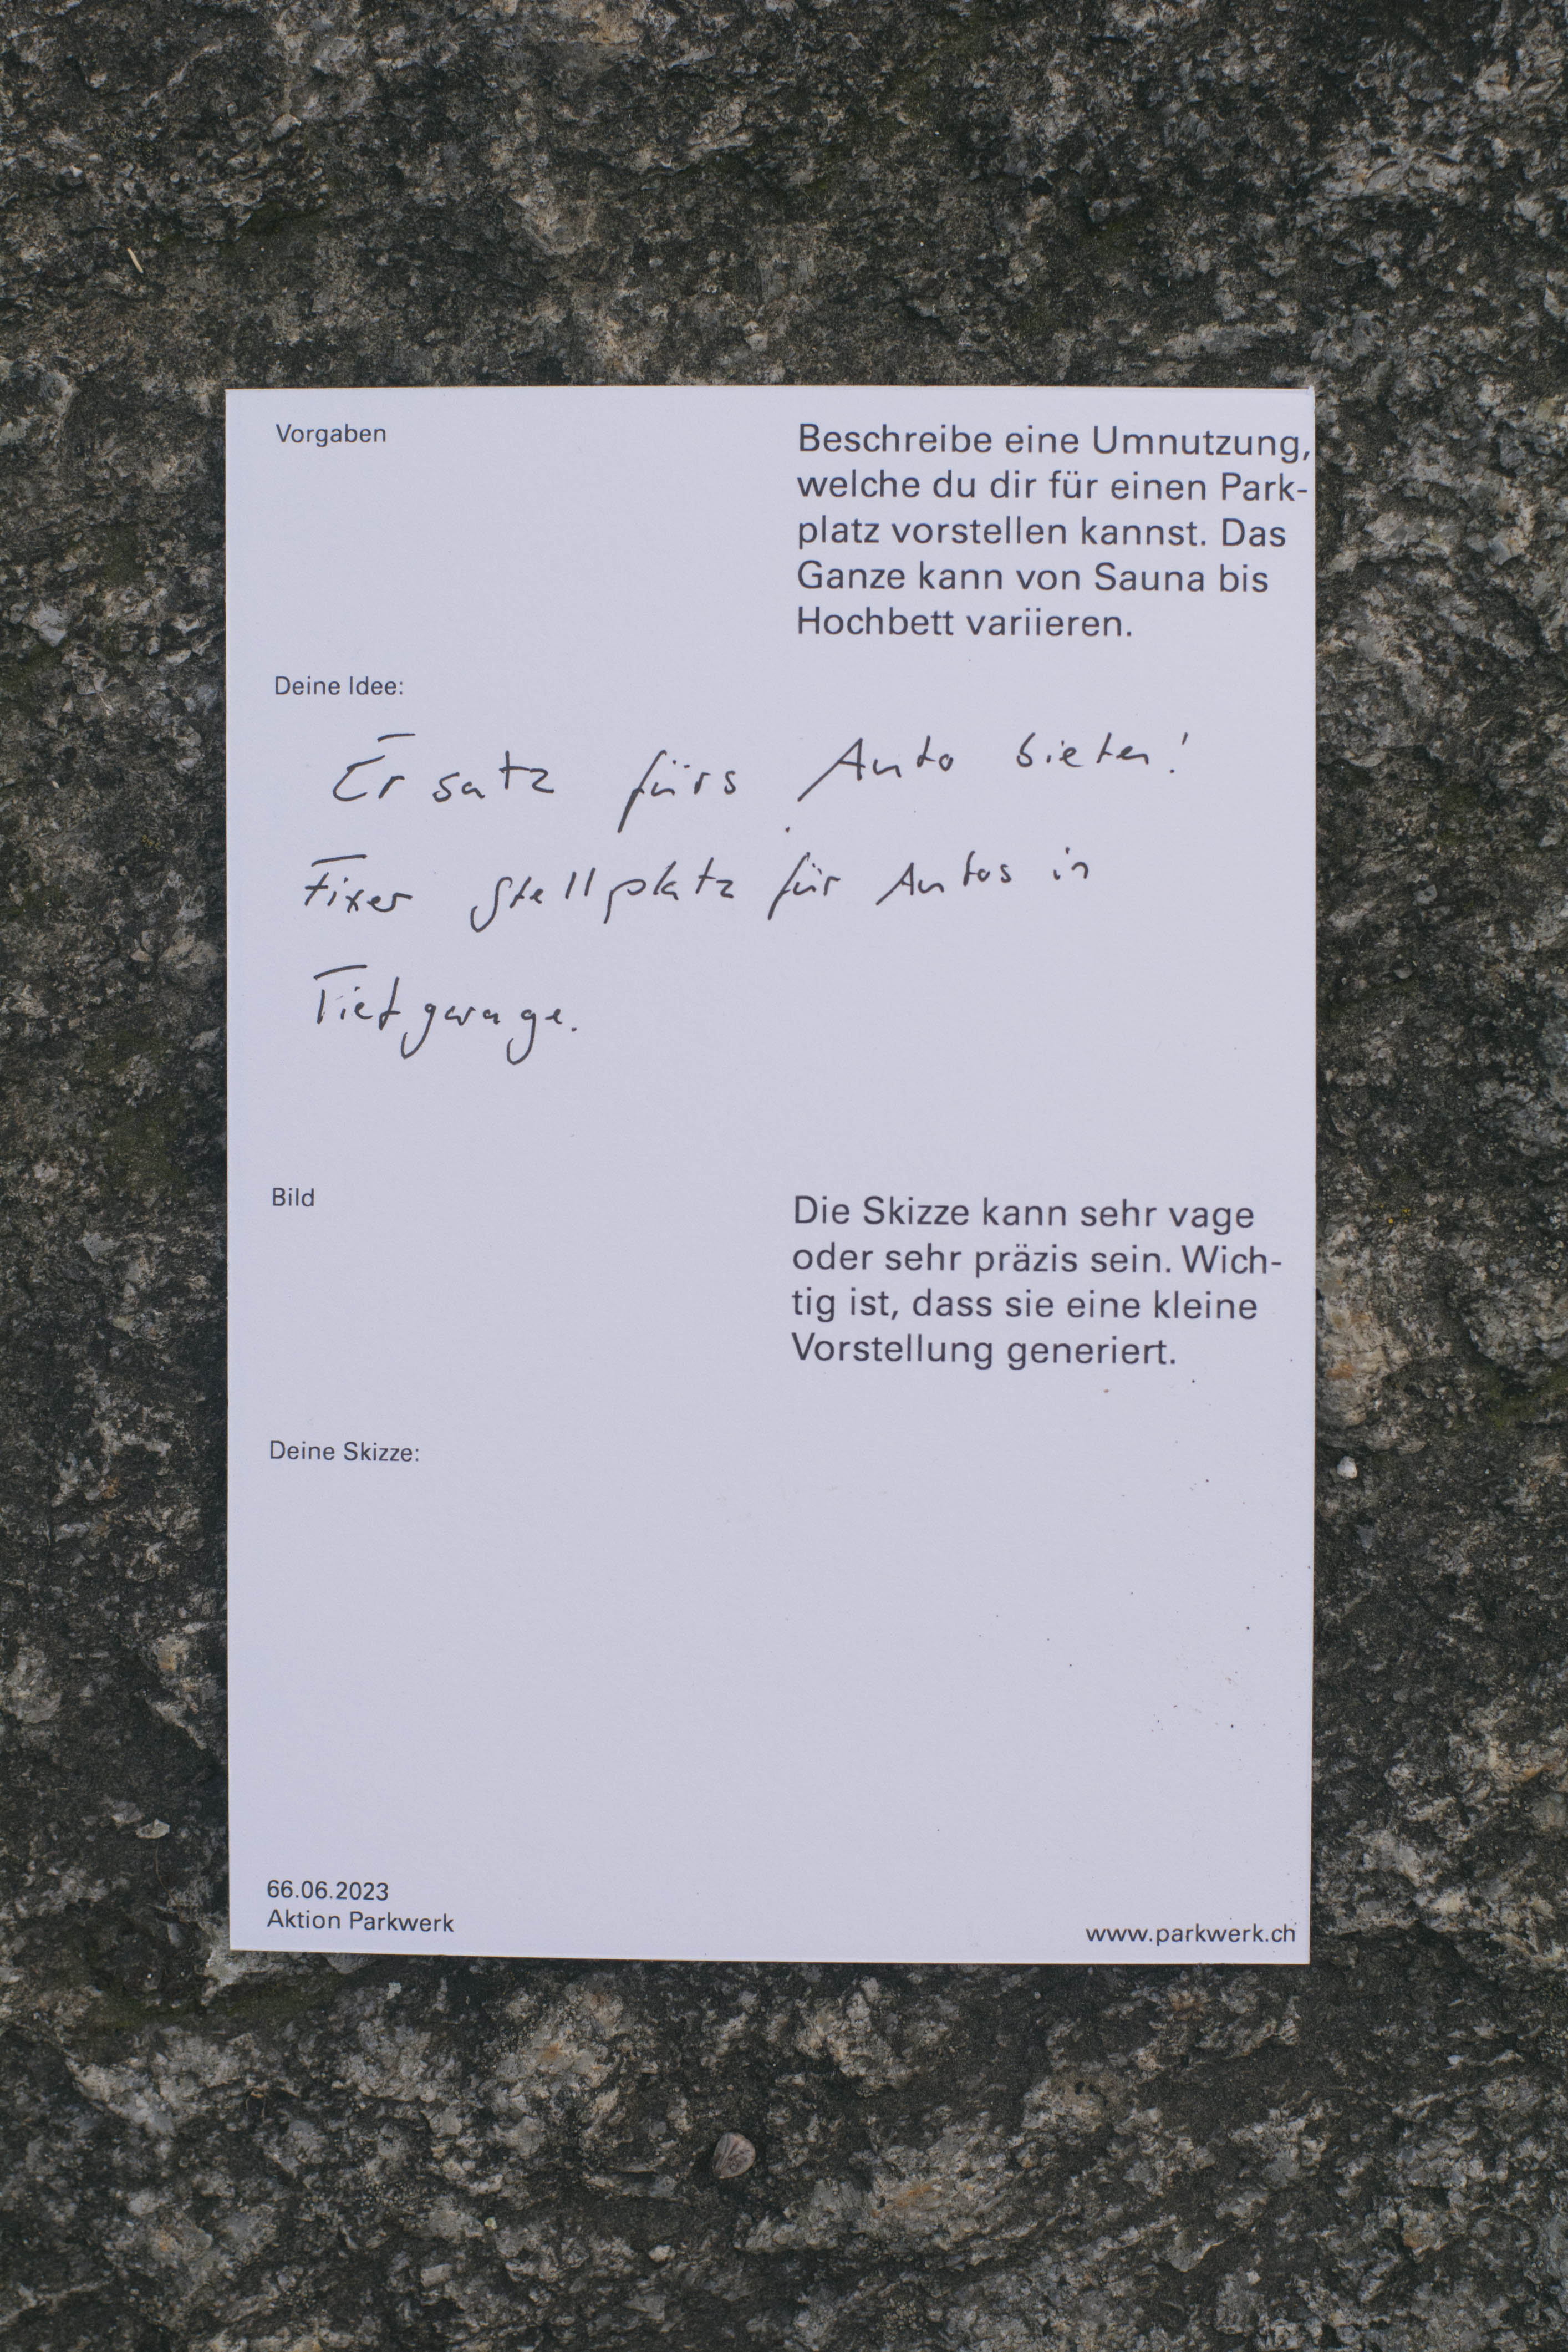 Vorgaben
Beschreibe eine Umnutzung,
welche du dir für einen Park-
platz vorstellen kannst. Das
Ganze kann von Sauna bis
Hochbett variieren.
Deine Idee:
Ersatz fürs Auto bieten!
Fixer Stellplatz für Autos in
Tiefgarage.
Bild
Die Skizze kann sehr vage
oder sehr präzis sein. Wich-
tig ist, dass sie eine kleine
Vorstellung generiert.
Deine Skizze:
66.06.2023
Aktion Parkwerk
www.parkwerk.ch